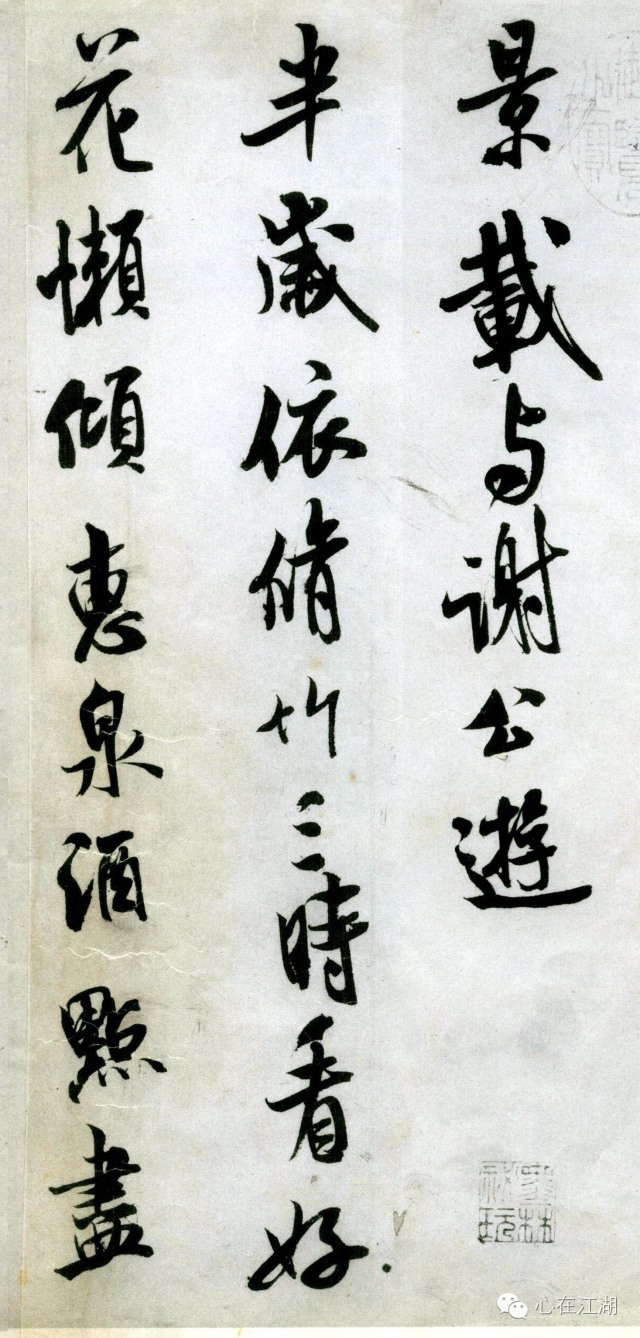 景載与謝公遊
半歲依脩竹三時看好
花懶傾惠泉酒點盡
心在江湖